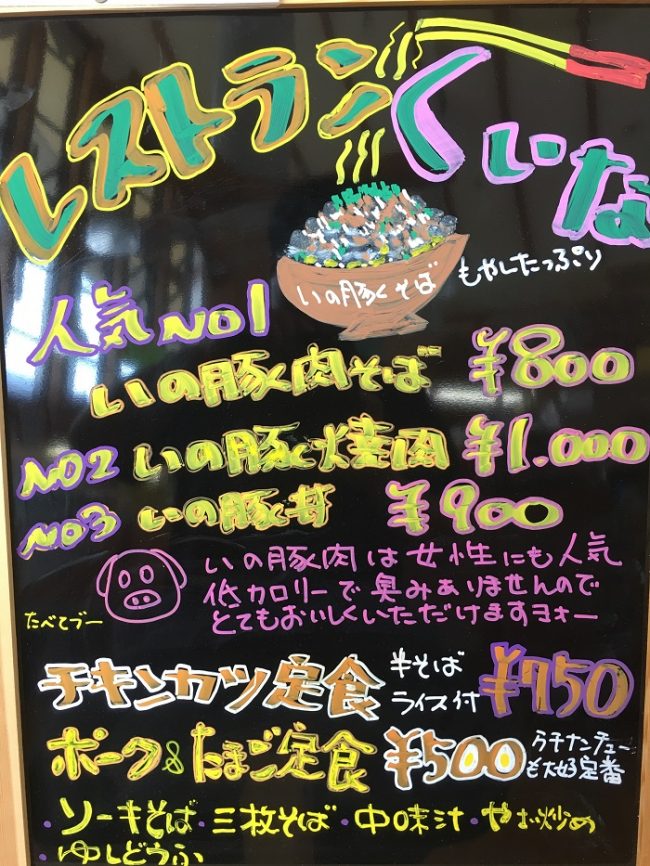 レストランくいな
いの豚そば
もやしたっぷり
人気NO1
いの豚肉そば ¥800
NO2 いの豚焼肉 ¥1.000
NO3 いの豚丼 ¥900
いの豚肉は女性にも人気
低カロリーで臭みありませんので
とてもおいしくいただけますヨォー
たべてブー
チキンカツ定食 半そば ライス付 ¥750
ポーク&たまご定食 ¥500 ウチナンチュー
も大好定番
・ソーキそば・三枚そば・中味汁・やさい炒め
ゆしどうふ